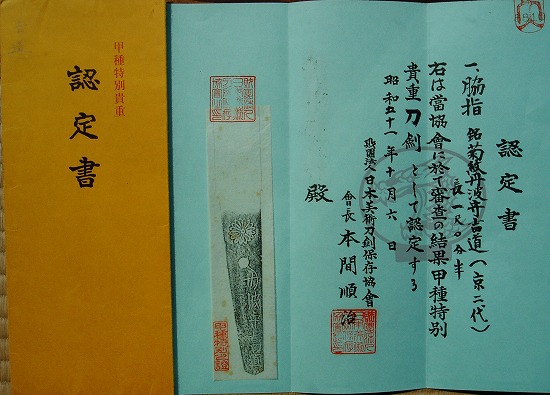 甲種特別貴重
認定書
認定書
一、脇指 銘 菊紋丹波守吉道(京二代)
長一尺〇分半
右は當協會に於て審査の結果甲種特別
貴重刀劍として認定する
昭和五十一年十月六日
財團法人日本美術刀剣保存協會
會長 本間順治
殿